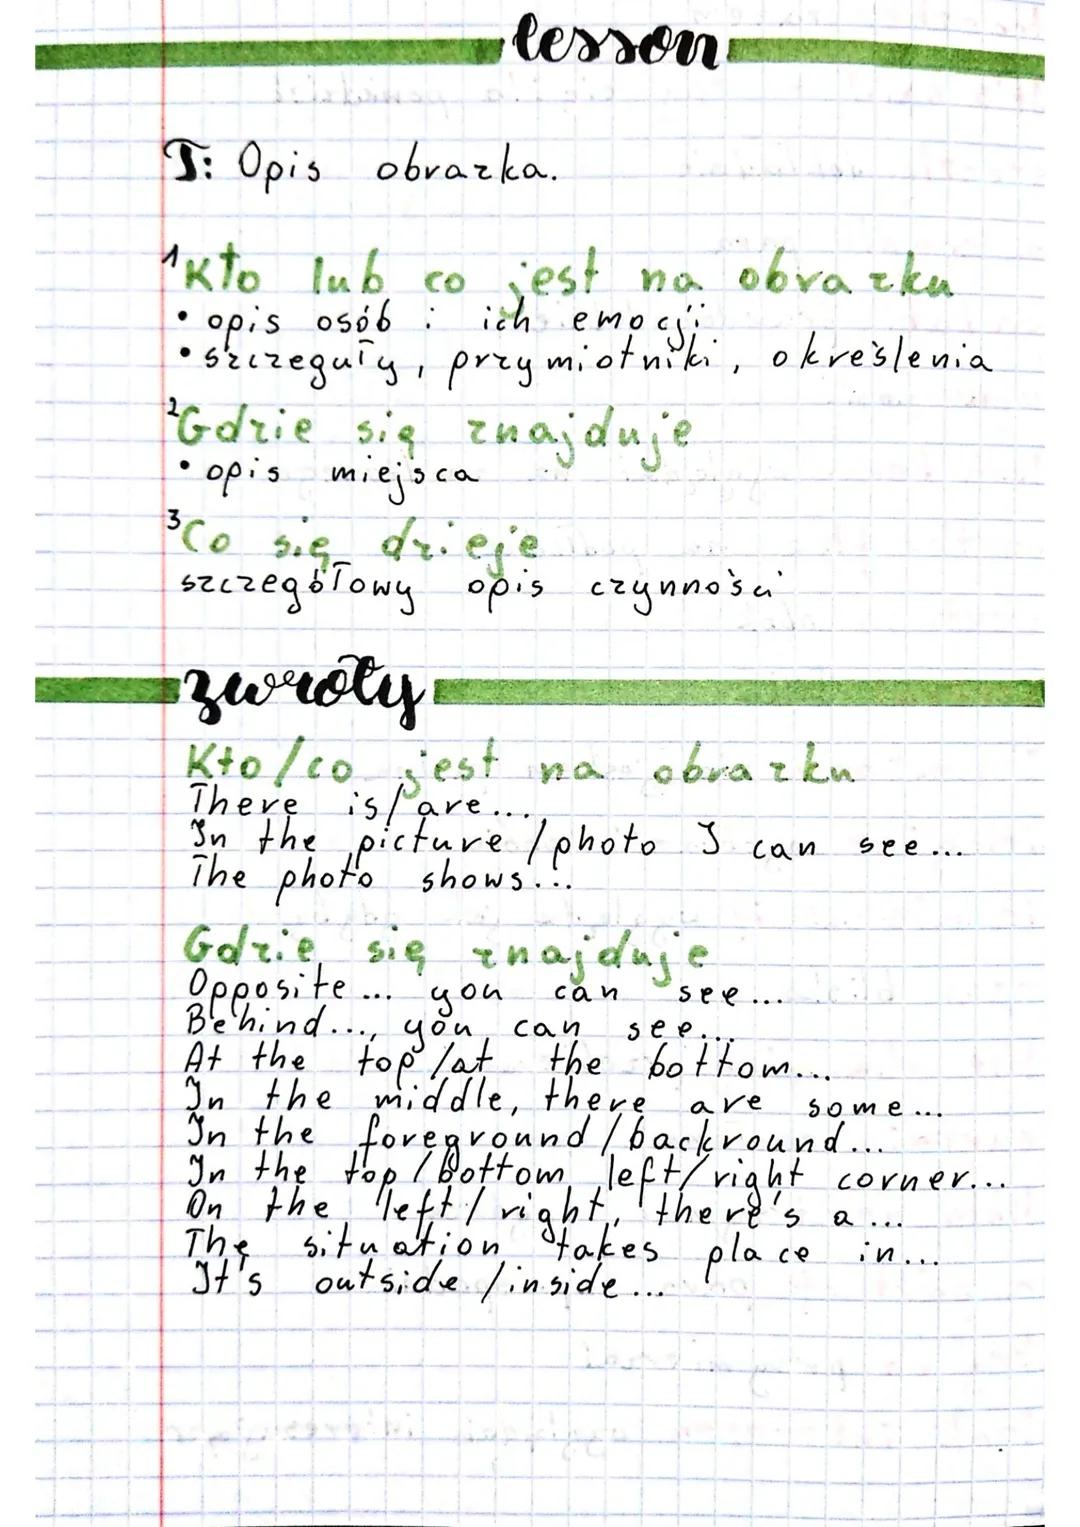 lesson
T: Opis obrazka.
1 Kto lub co jest na obrazku
• opis osób i ich emocji
• szczeguły, przymiotniki, określenia
2 Gdzie się znajduje
• opis miejsca
3 Co się dzieje
szczegółowy opis czynności
zwroty
Kto/co jest na obrazku
There is/are...
In the picture/photo I can see...
The photo shows...
Gdzie się znajduje
Opposite... you can see...
Behind..., you can see...
At the top/at the bottom...
In the middle, there are some...
In the foreground/backround...
In the top/bottom left/right corner...
On the left/right, there's a...
The situation takes place in...
It's outside/inside...